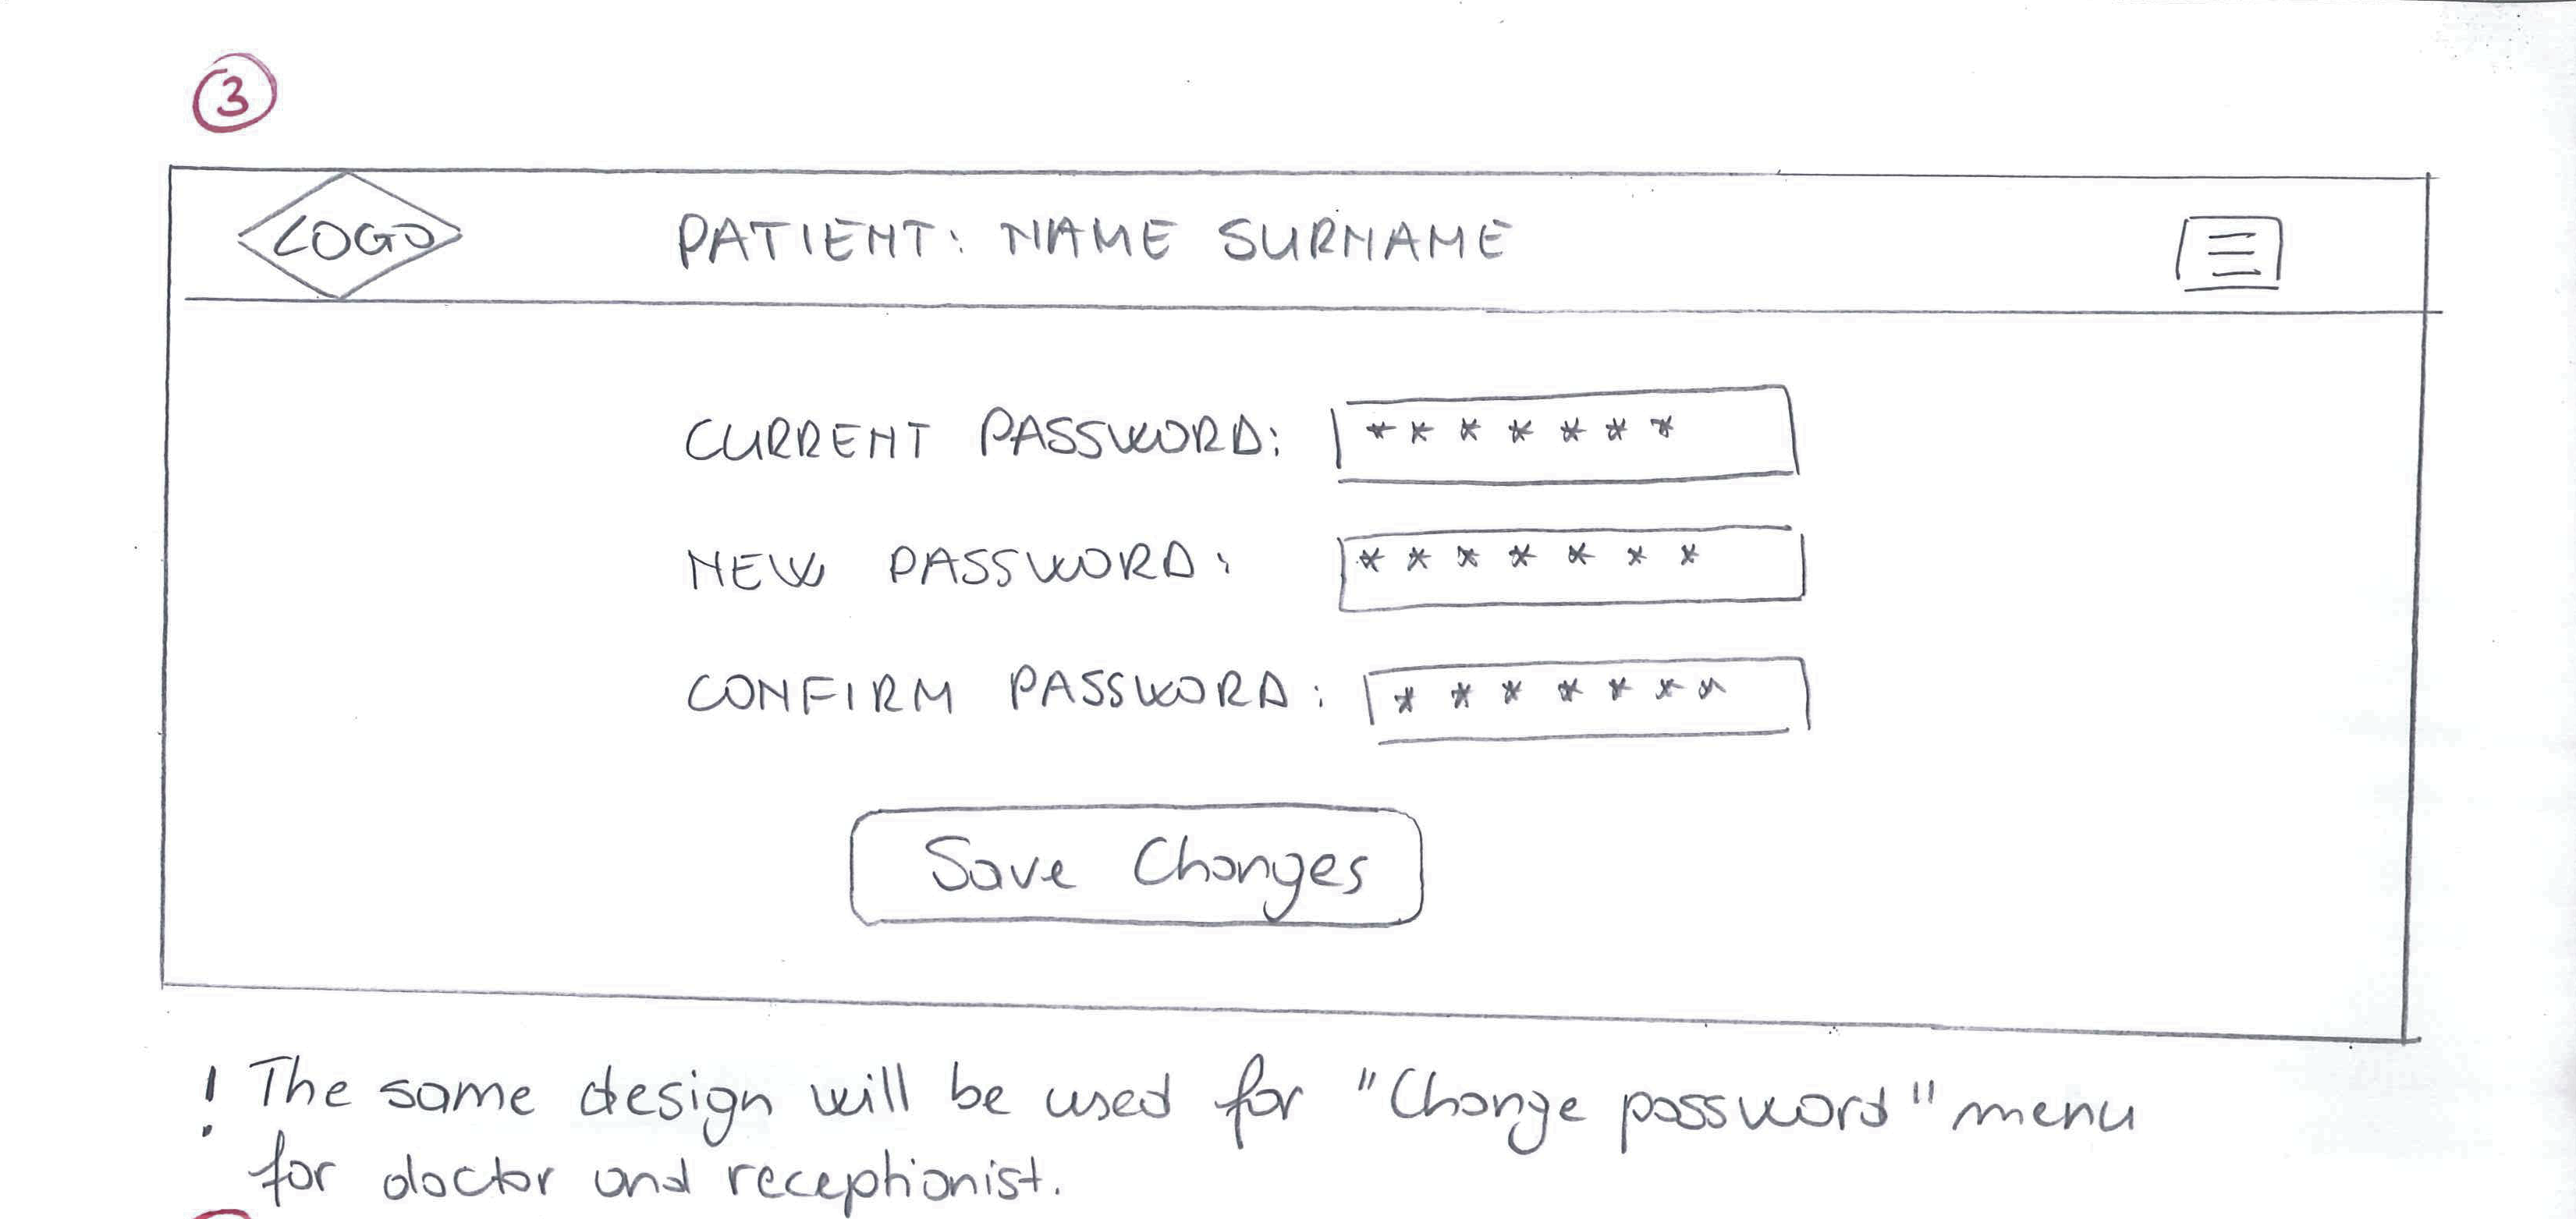 3
LOGO PATIENT: NAME SURNAME
CURRENT PASSWORD: *******
NEW PASSWORD: *******
CONFIRM PASSWORD: *******
Save Changes
! The same design will be used for "Change password" menu
for doctor and receptionist.